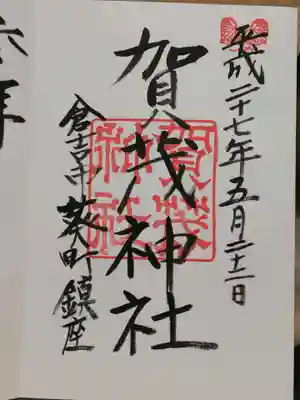 平成二十七年五月二十二日
賀茂神社
倉吉市葵町鎮座
拝